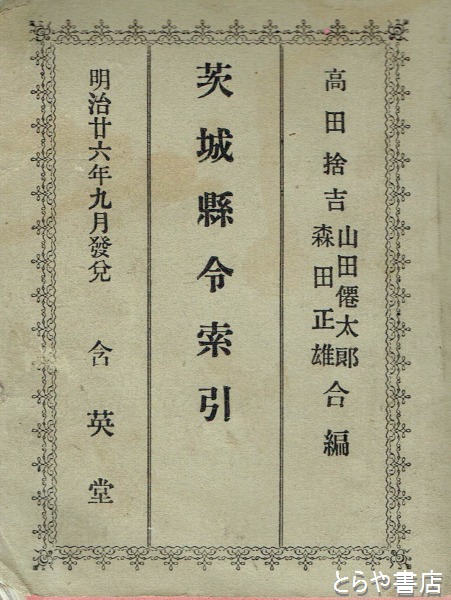 高田捨吉
山田僊太郞
森田正雄
合編
茨城縣令索引
明治廿六年九月發兌 含英堂
とらや書店